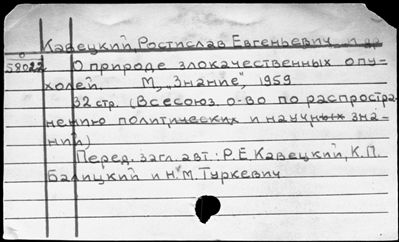 Кавецкий, Ростислав Евгеньевич и др
О природе злокачественных опу-
58022 холей. М, „Знание", 1959
32 стр. (Всесоюз. о-во по распростра-
нению политических и научных зна-
ний)
Перед. загл. авт.: Р. Е. Кавецкий, К. П.
Балицкий и Н. М. Туркевич